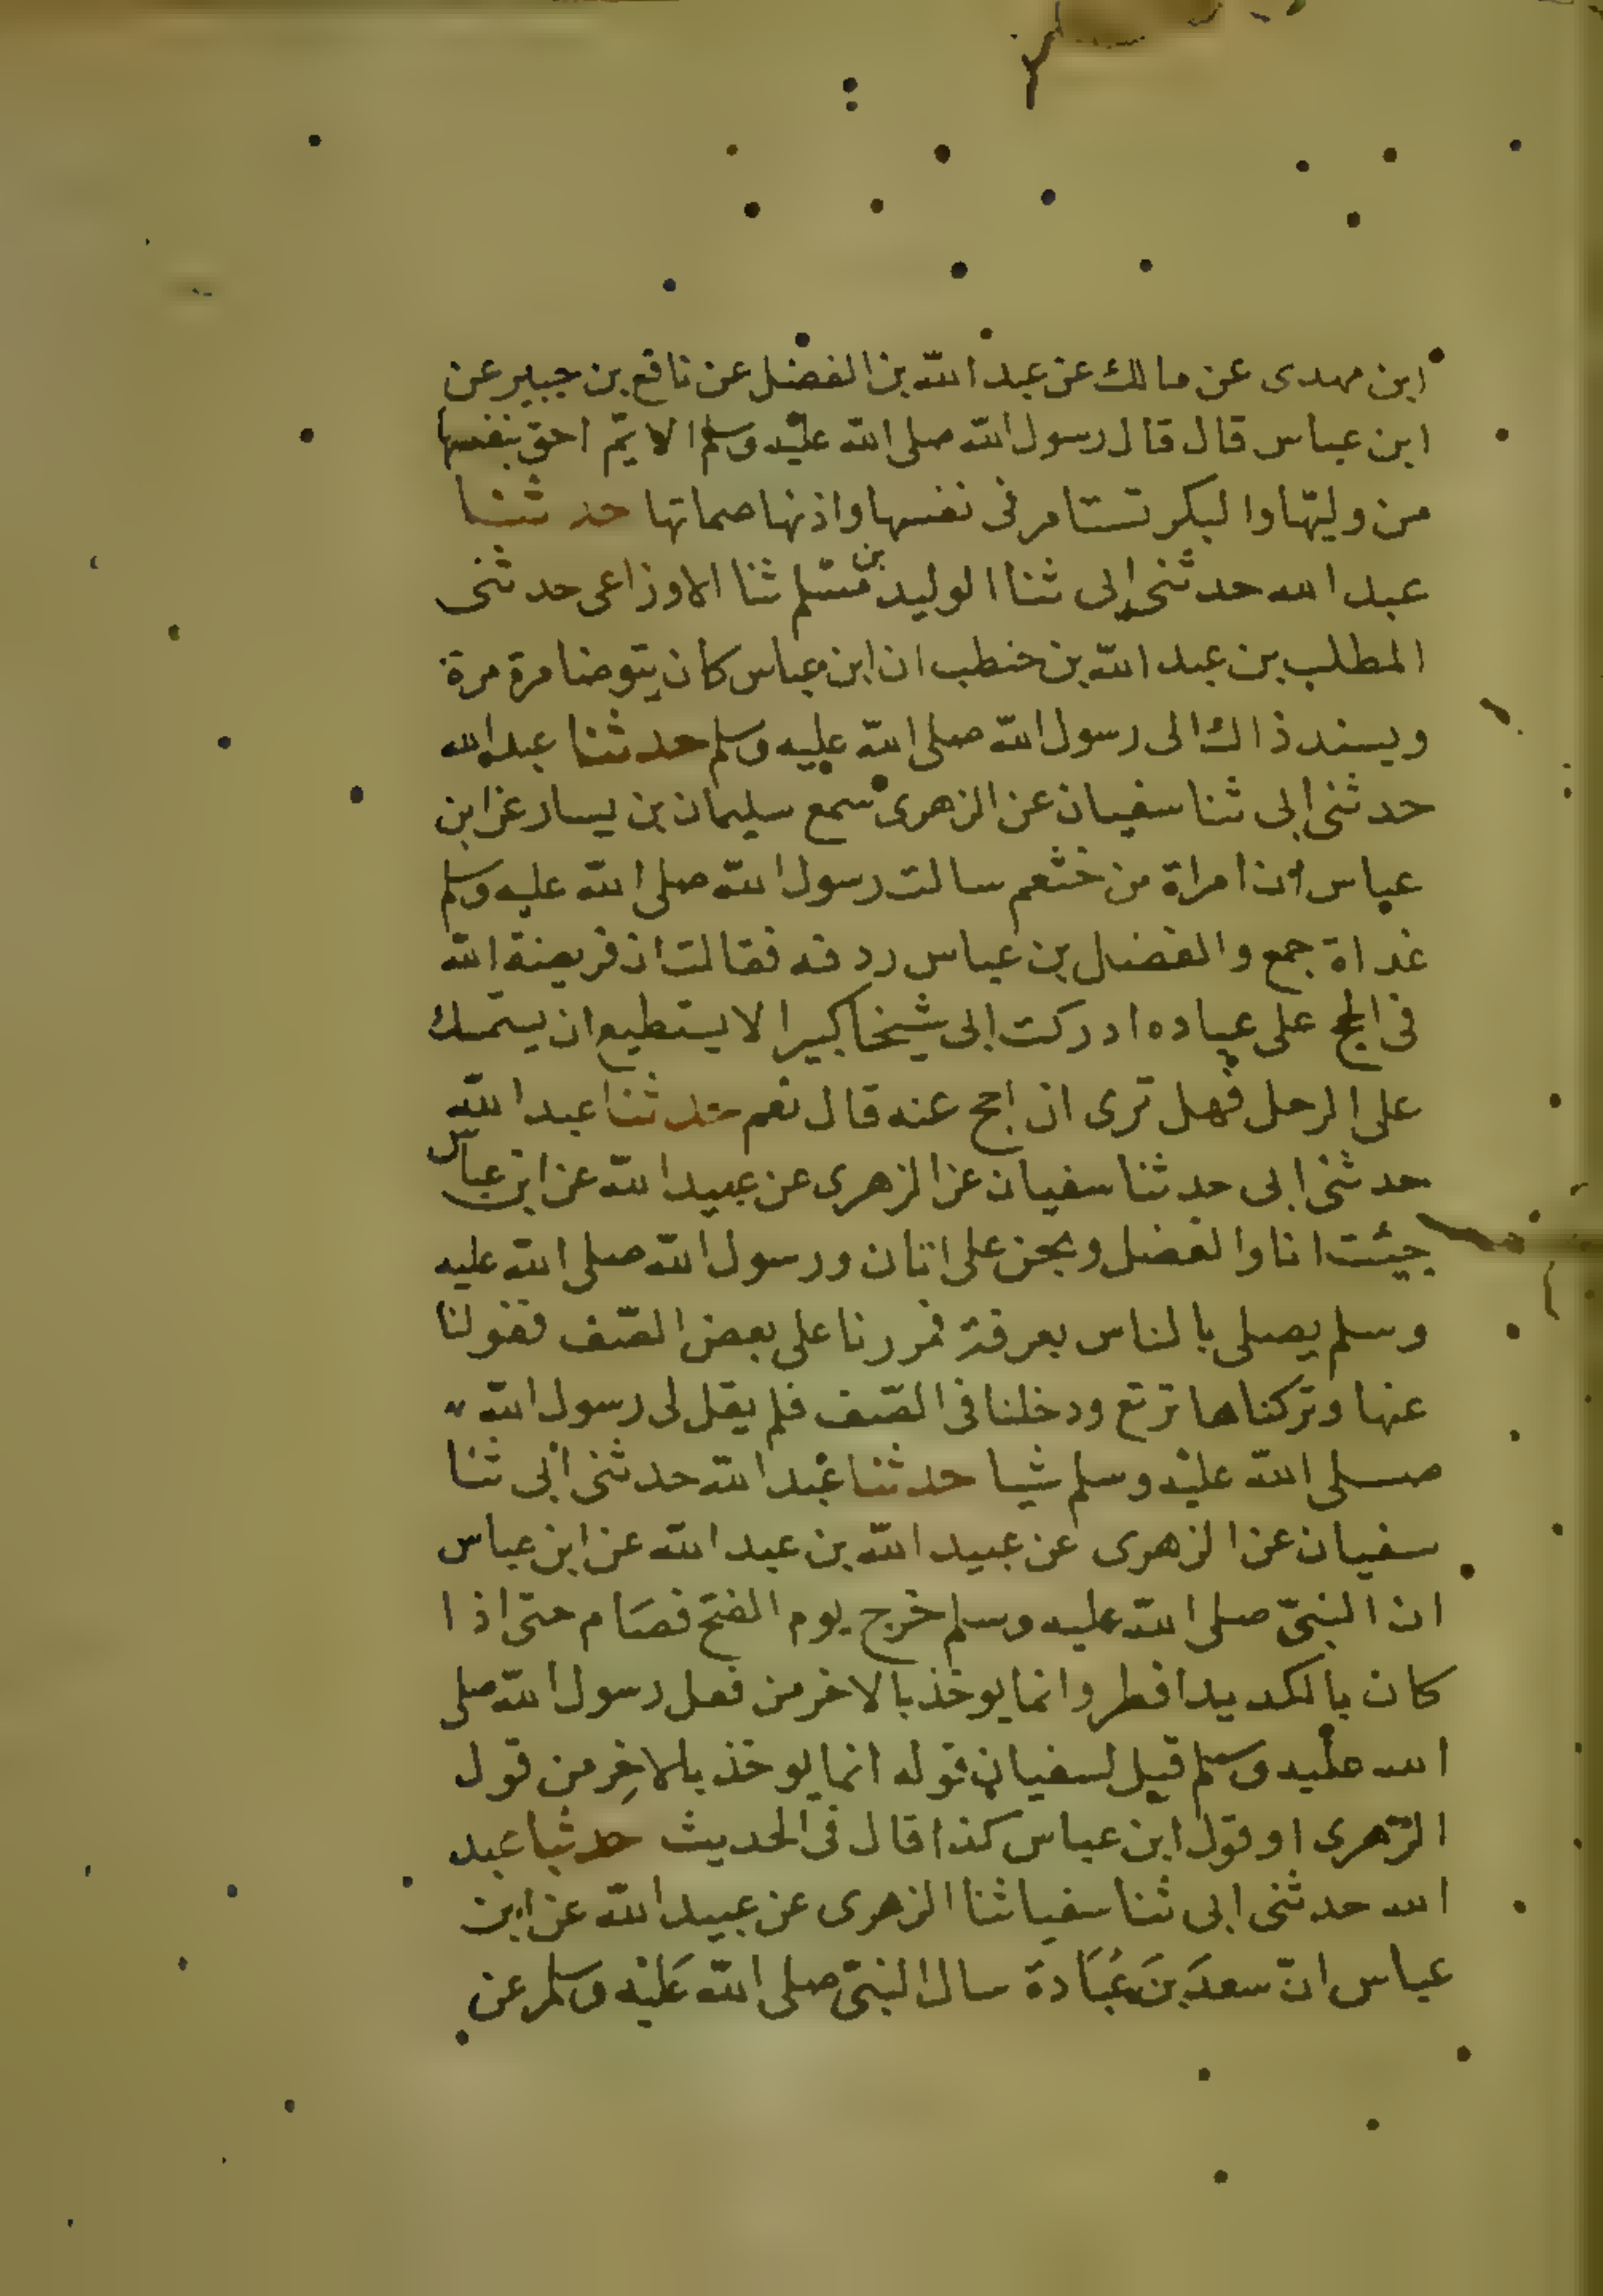 ابن مهدى عن مالك عن عبد الله بن الفضل عن نافع بن جبير عن
ابن عباس قال قال رسول الله صلى الله عليه وسلم الايّم احق بنفسها
من وليّها والبكر تستامر فى نفسها واذنها صماتها حدثنا
عبد الله حدثنى ابى ثنا الوليد بن مسلم ثنا الاوزاعى حدثنى
المطلب بن عبد الله بن حنطب ان ابن عباس كان يتوضا مرة مرة
ويسند ذاك الى رسول الله صلى الله عليه وسلم حدثنا عبد الله
حدثنى ابى ثنا سفيان عن الزهرى سمع سليمان بن يسار عن ابن
عباس ان امراة من خثعم سالت رسول الله صلى الله عليه وسلم
غداة جمع والفضل بن عباس ردفه فقالت ان فريضة الله
فى الحج على عباده ادركت ابى شيخا كبيرا لا يستطيع ان يستمسك
على الرحل فهل ترى ان احج عنه قال نعم حدثنا عبد الله
حدثنى ابى حدثنا سفيان عن الزهرى عن عبيد الله عن ابن عباس
جيئت انا والفضل ونحن على اتان ورسول الله صلى الله عليه
وسلم يصلى بالناس بعرفة فمررنا على بعض الصّف فنزلنا
عنها وتركناها ترتع ودخلنا فى الصّف فلم يقل لى رسول الله
صلى الله عليه وسلم شيا حدثنا عبد الله حدثنى ابى ثنا
سفيان عن الزهرى عن عبيد الله بن عبد الله عن ابن عباس
ان النبىّ صلى الله عليه وسلم خرج يوم الفتح فصام حتى اذا
كان بالكديد افطر وانما يوخذ بالاخر من فعل رسول الله صلى
الله عليه وسلم قيل لسفيان قوله انما يوخذ بالاخِر من قول
الزّهرى او قول ابن عباس كذا قال فى الحديث حدثنا عبد
الله حدثنى ابى ثنا سفيا ثنا الزهرى عن عبيد الله عن ابن
عباس انّ سعدَ بنَ عُبَادةَ سال النبىّ صلى الله عَليْه وسلم عن